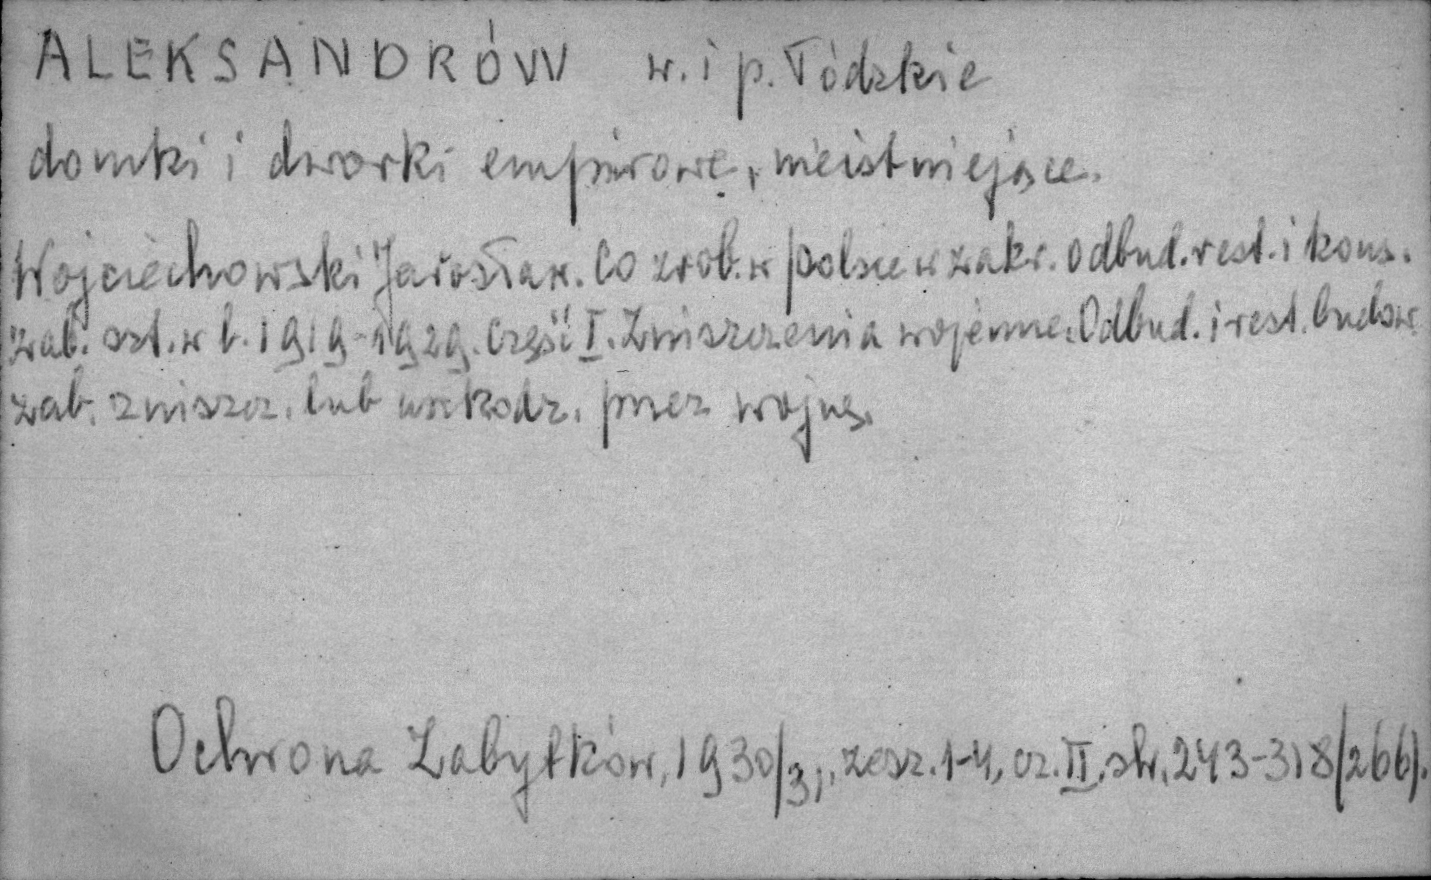 ALEKSANDRÓW w. i p. Łódzkie
domki i dworki empirowe, nieistniejące.
Wojciechowski Jarosław. Co zrob. w Polsce w zakr. odbud. rest. i kons.
zab. szt. w l. 1919-1929. Część I. Zniszczenia wojenne. Odbud. i rest. budow.
zab. zniszcz. lub uszkodz. przez wojnę.
Ochrona Zabytków, 1930/31, zesz. 1-4, cz. II, str. 243-318/266).